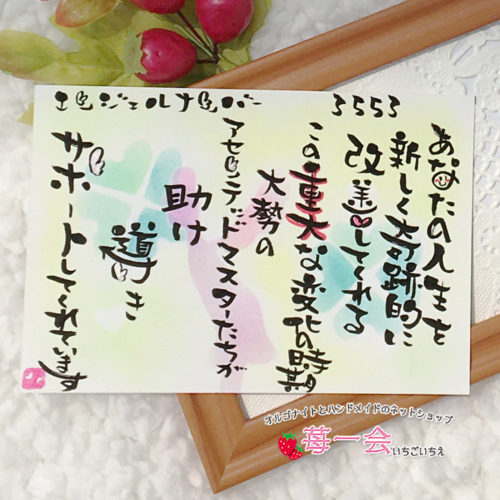 エンジェルナンバー 3553
あなたの人生を
新しく奇跡的に
改善してくれる
この重大な変化の時期
大勢の
アセンデッドマスターたちが
助け
導き
サポートしてくれています
オルゴナイトとハンドメイドのネットショップ
苺一会 いちごいちえ